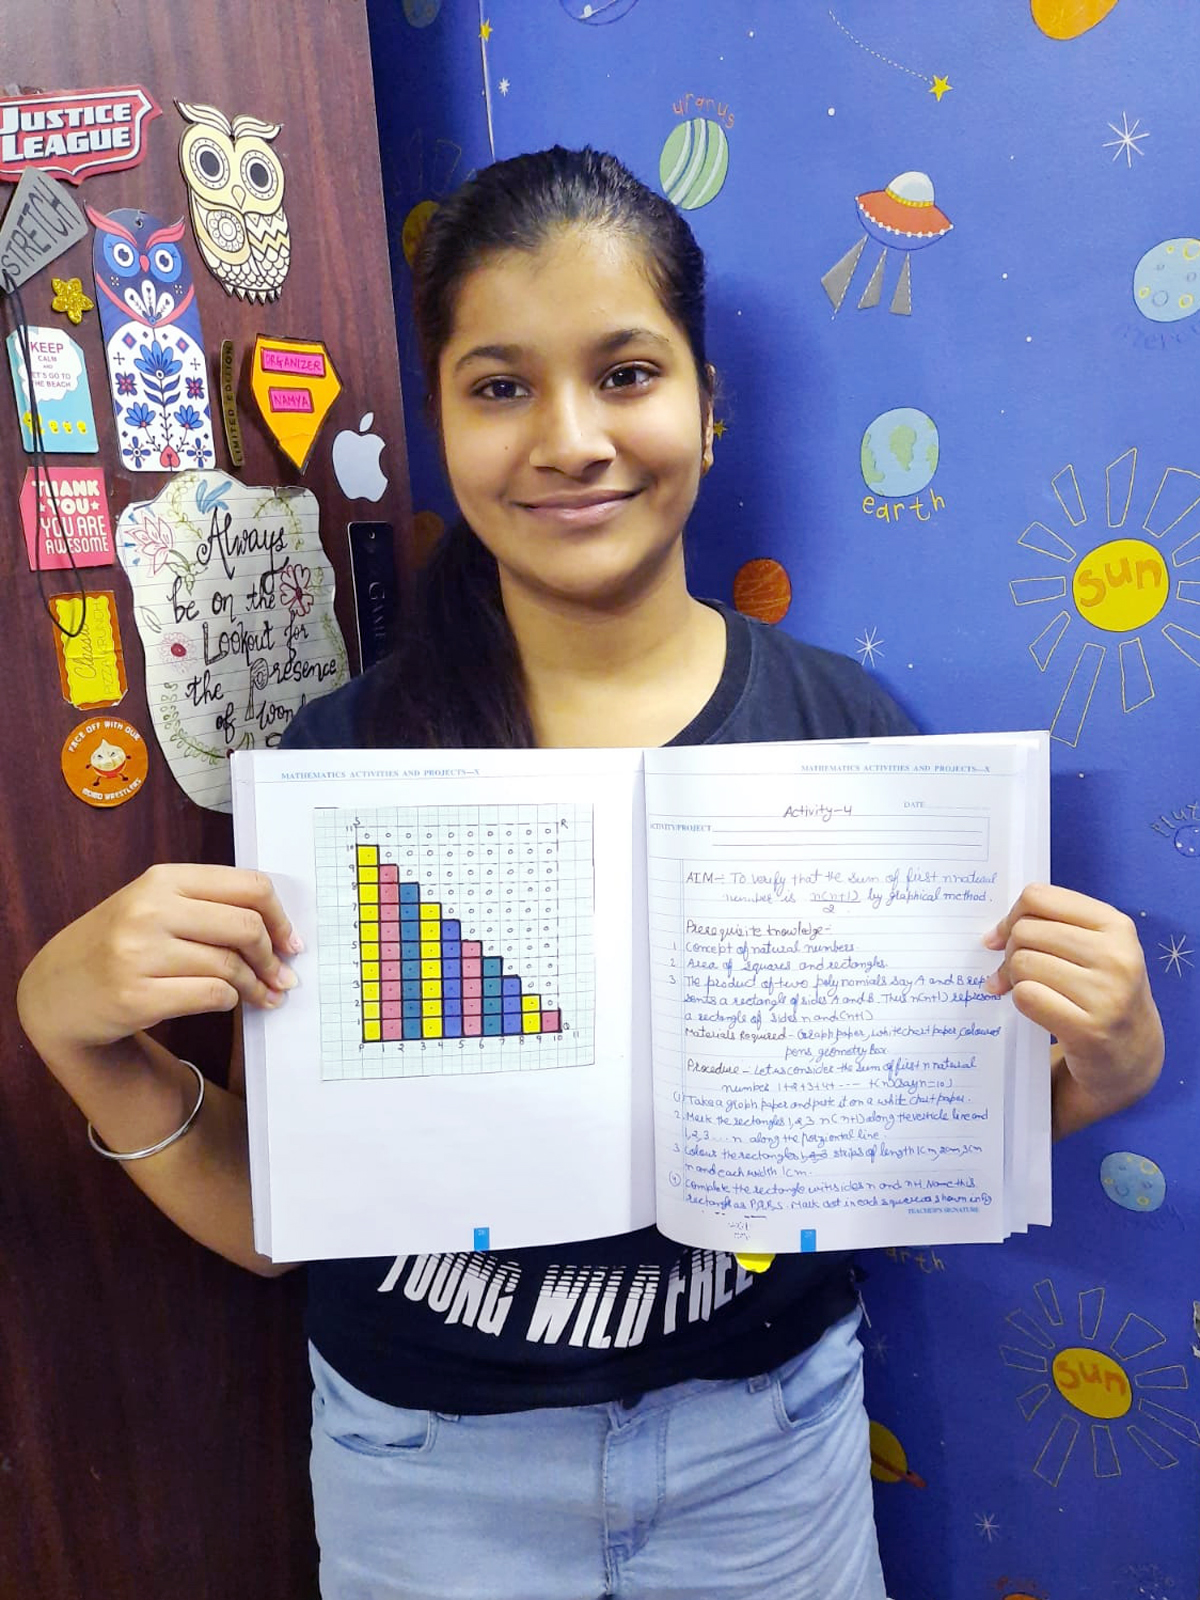 JUSTICE
LEAGUE
STRETCH
KEEP
CALM
AND
LET'S GO TO
THE BEACH
LIMITED EDITION
ORGANIZER
NAMYA
THANK
YOU
YOU ARE
AWESOME
Always
be on the
Lookout for
the Presence
of
Classic
FACE OFF WITH OUR
MOMO WRESTLERS
uranus
earth
sun
MATHEMATICS ACTIVITIES AND PROJECTS—X
S
R
11
10
9
8
7
6
5
4
3
2
1
P 1 2 3 4 5 6 7 8 9 10 11
Q
MATHEMATICS ACTIVITIES AND PROJECTS—X
Activity-4
DATE
ACTIVITY/PROJECT
AIM-: To verify that the sum of first n natural
number is n(n+1)/2 by graphical method.
Prerequisite knowledge-
1. Concept of natural numbers.
2. Area of squares and rectangles.
3. The product of two polynomials say A and B repre
sents a rectangle of sides A and B. Thus n(n+1) represents
a rectangle of sides n and (n+1)
Materials Required - Graph paper, white chart paper, coloured
pens, geometry box
Procedure - Let us consider the sum of first n natural
number 1+2+3+4+ ---- +(n) (say n=10)
(1) Take a graph paper and paste it on a white chart paper.
2. Mark the rectangles 1,2,3 n (n+1) along the verticle line and
1,2,3 .... n along the line.
3. Colour the rectangles strips of length 1cm, 2cm, 3cm
n and each width 1cm.
(4) Complete the rectangle with sides n and n+1. Name this
rectangle as P,Q,R,S. Mark dot in each square as shown in fig
TEACHER'S SIGNATURE
26
27
YOUNG WILD FREE
earth
sun